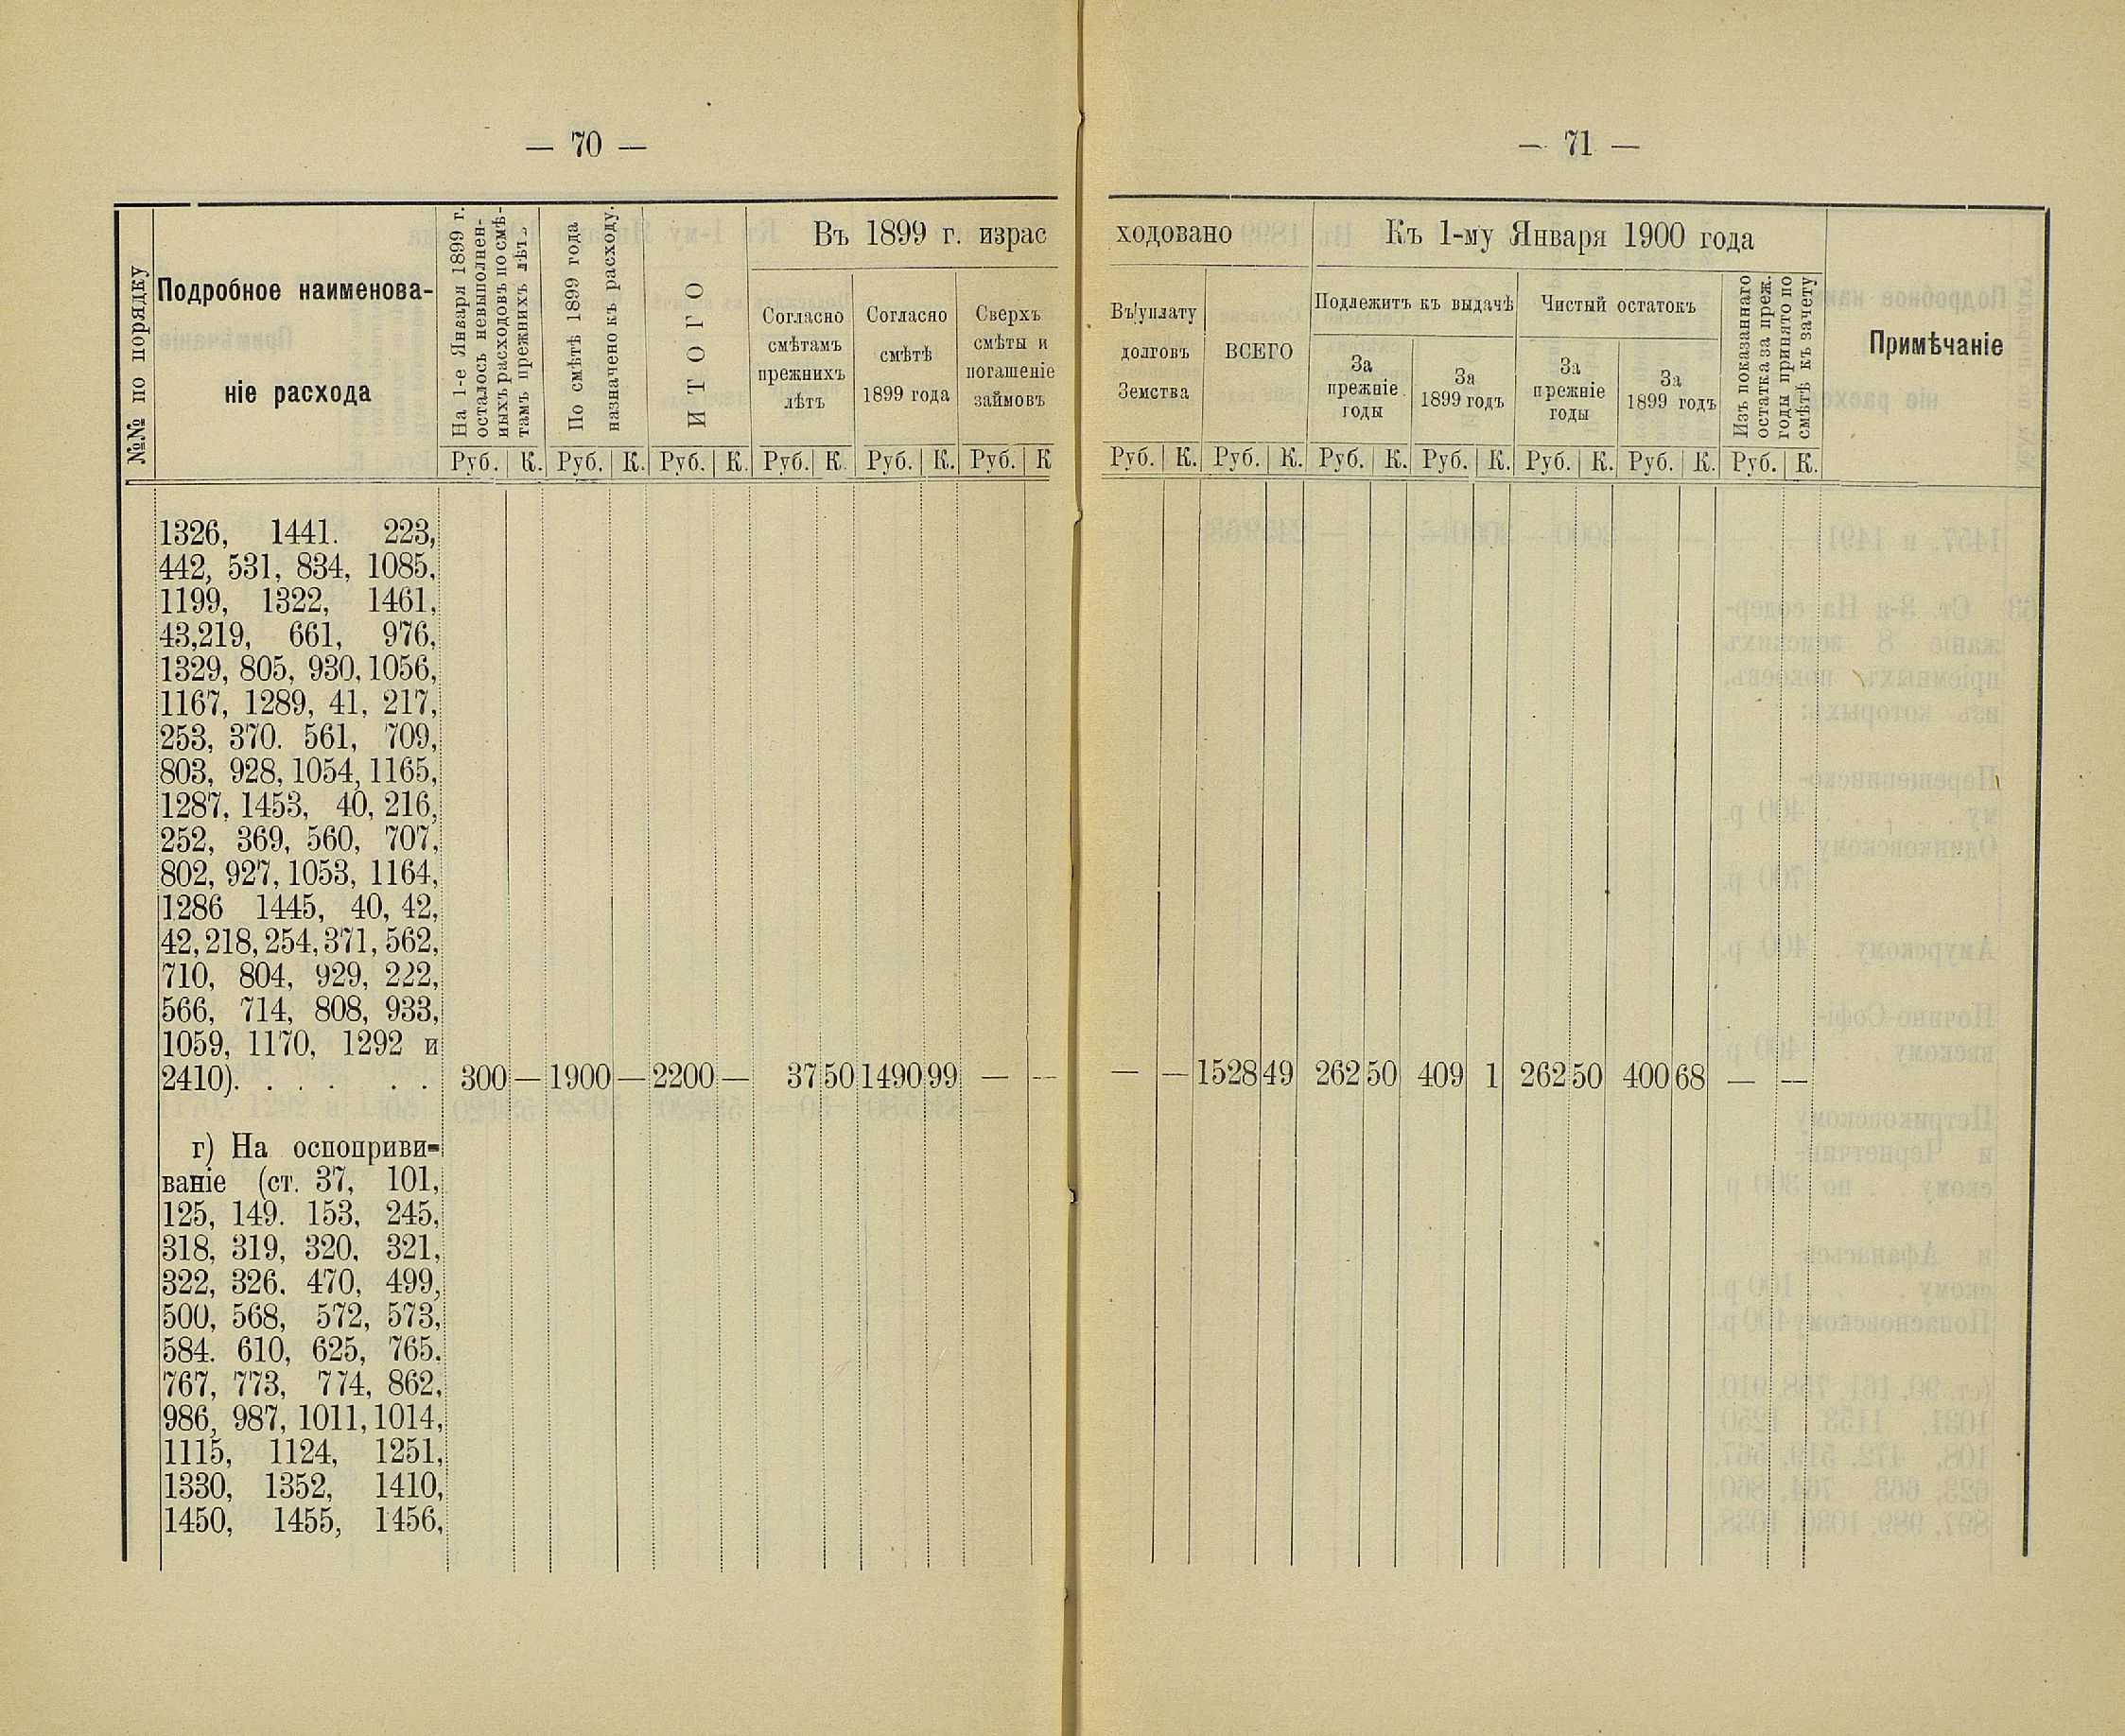 — 70 —
№№ по порядку
Подробное наименова-
ніе расхода
На 1-е Января 1899 г.
осталось невыполнен-
ныхъ расходовъ по смѣ-
тамъ прежнихъ лѣтъ
По смѣтѣ 1899 года
назначено къ расходу.
ИТОГО
Въ 1899 г. израс
Согласно
смѣтамъ
прежнихъ
лѣтъ
Согласно
смѣтѣ
1899 года
Сверхъ
смѣты и
погашеніе
займовъ
Руб. К. Руб. К. Руб. К. Руб. К. Руб. К. Руб. К
1326, 1441. 223,
442, 531, 834, 1085,
1199, 1322, 1461,
43,219, 661, 976,
1329, 805, 930, 1056,
1167, 1289, 41, 217,
253, 370. 561, 709,
803, 928, 1054, 1165,
1287, 1453, 40, 216,
252, 369, 560, 707,
802, 927, 1053, 1164,
1286 1445, 40, 42,
42, 218, 254, 371, 562,
710, 804, 929, 222,
566, 714, 808, 933,
1059, 1170, 1292 и
2410). . . . . . . 300 — 1900 — 2200 — 37 50 1490 99 — —
г) На оспоприви-
ваніе (ст. 37, 101,
125, 149. 153, 245,
318, 319, 320, 321,
322, 326. 470, 499,
500, 568, 572, 573,
584. 610, 625, 765.
767, 773, 774, 862,
986, 987, 1011, 1014,
1115, 1124, 1251,
1330, 1352, 1410,
1450, 1455, 1456,
— 71 —
ходовано
Въ уплату
долговъ
Земства
ВСЕГО
Къ 1-му Января 1900 года
Подлежитъ къ выдачѣ
За
прежніе
годы
За
1899 годъ
Чистый остатокъ
За
прежніе
годы
За
1899 годъ
Изъ показаннаго
остатка за преж.
годы принято по
смѣтѣ къ зачету
Примѣчаніе
Руб. К. Руб. К. Руб. К. Руб. К. Руб. К. Руб. К. Руб. К.
— — 1528 49 262 50 409 1 262 50 400 68 — —